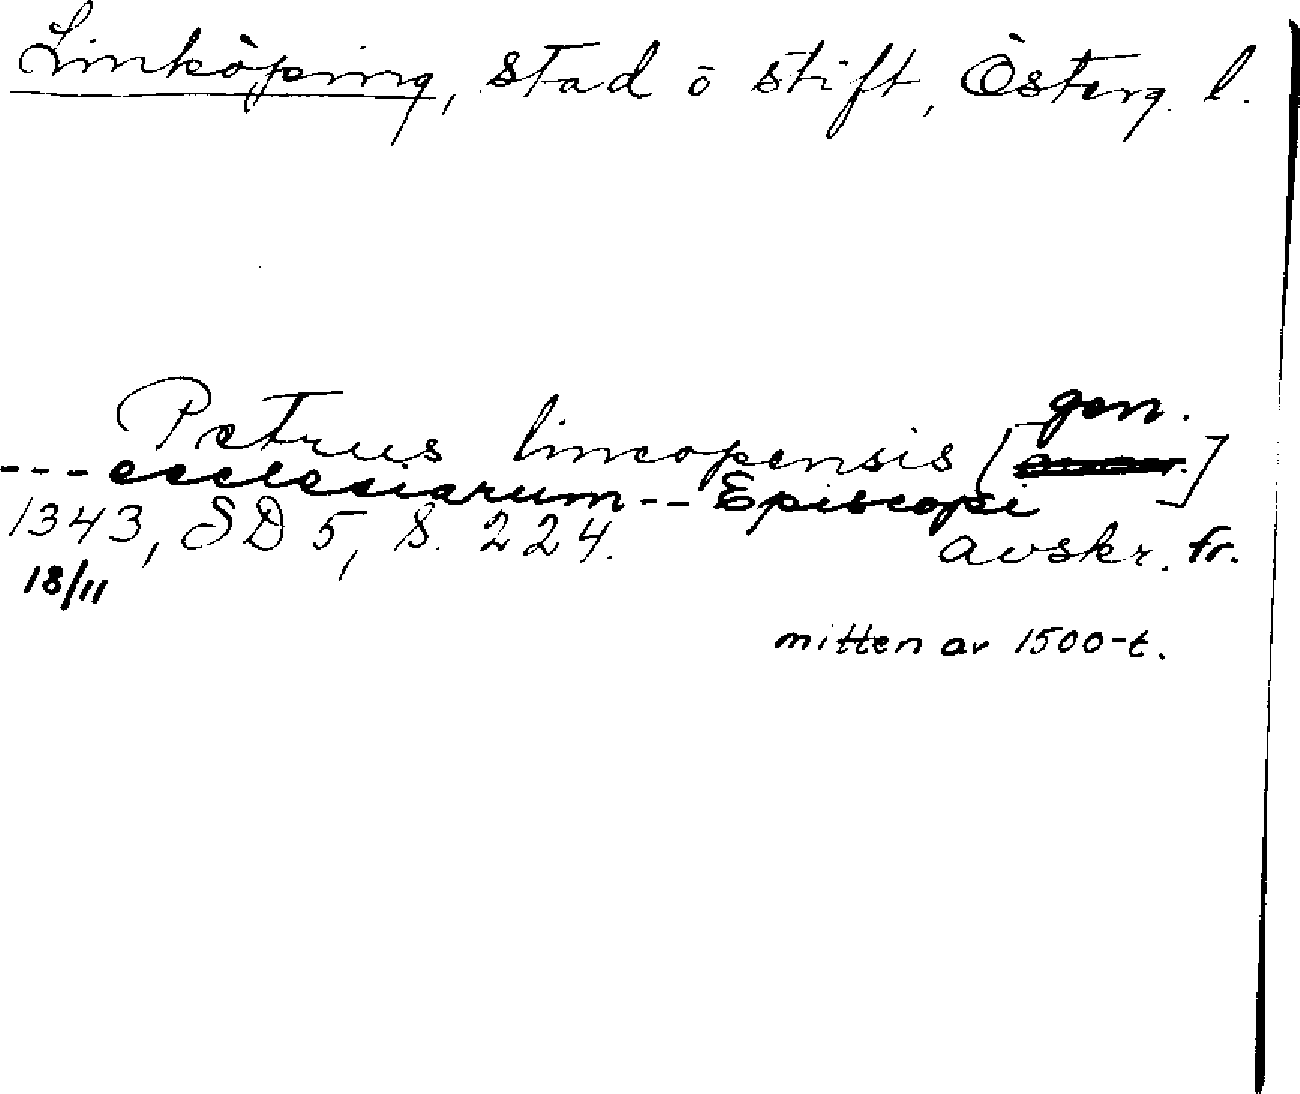 Linköping, stad o stift, Österg. l.
Petrus lincopensis [gen.]
--- ecclesiarum -- Episcopi
1343, SD 5, S. 224. avskr. fr.
18/11
mitten av 1500-t.